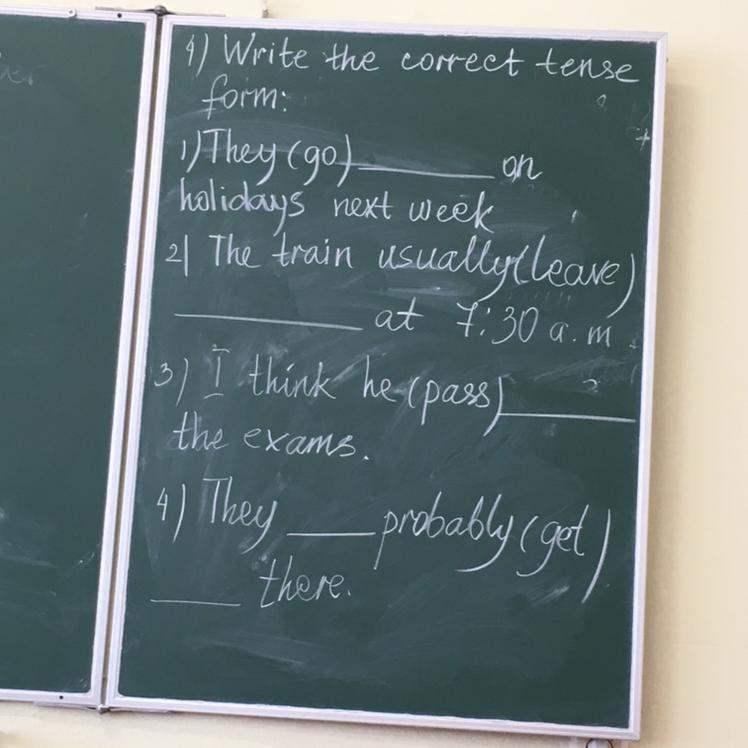 4) Write the correct tense
form:
1) They (go) ________ on
holidays next week
2) The train usually (leave)
________ at 7:30 a.m.
3) I think he (pass) ________
the exams.
4) They ____ probably (get)
____ there.